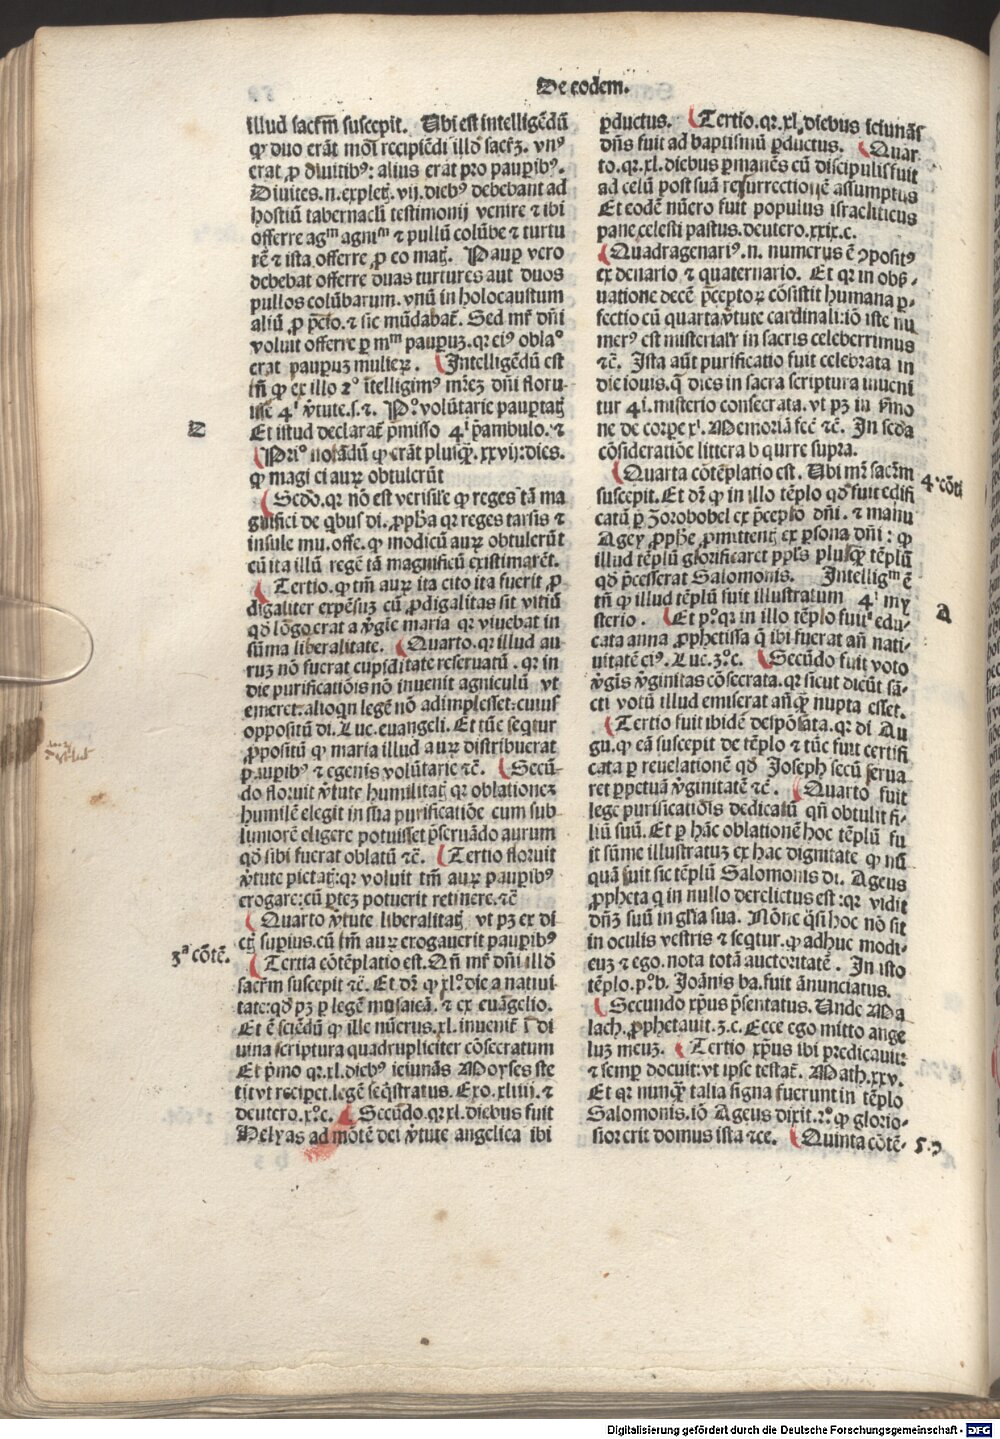 De eodem.
illud sacr̄m suscepit. Ubi est intelligēdū
ꝙ duo erāt modi recipiēdi illd̄ sacr̄ꝫ. vnꝰ
erat ꝓ diuitibꝰ: alius erat pro pauꝑibꝰ.
Diuites .n. explet. vij. diebꝰ debebant ad
hostiū tabernacli testimonij venire ⁊ ibi
offerre agᵐ agniᵐ ⁊ pullū colūbe ⁊ turtu
rē ⁊ ista offerre ꝓ eo mag. Pauꝑ vero
debebat offerre duas turtures aut duos
pullos colūbarum. vnū in holocaustum
aliū ꝓ pctō. ⁊ sic mūdabat̄. Sed mr̄ dn̄i
voluit offerre ꝑ mᵐ pauꝑuꝫ. qꝛ eiꝰ oblaᵒ
erat pauꝑuꝫ mulieꝝ. Intelligēdū est
tn̄ ꝙ ex illo 2ᵒ ītelligimꝰ mr̄eꝫ dn̄i floru-
isse 4ⁱ v̄tute. s. ⁊. Pᵒ volūtarie pauꝑtatꝭ
Et istud declarat̄ p̄misso 4ⁱ p̄ambulo. ⁊
D
Priᵒ notādū ꝙ erāt plusꝙ̄. xxvij: dies.
ꝙ magi ei auꝝ obtulerūt
Secdo. qꝛ nō est verisile ꝙ reges tā ma
gnifici de ꝗbus di. ꝓph̄a qꝛ reges tarsis ⁊
insule mu. offe. ꝙ modicū auꝝ obtulerūt
cū ita illū regē tā magnificū existimarēt.
Tertio. ꝙ tm̄ auꝝ ita cito ita fuerit ꝓ
digaliter expēsuꝫ cū ꝓdigalitas sit vitiū
qd̄ lōgo erat a v̄gīe maria qꝛ viuebat in
sūma liberalitate. Quarto. qꝛ illud au
ruꝫ nō fuerat cupiditate reseruatū. qꝛ in
die purificatiōis nō inuenit agniculū vt
emeret. alioqn legē nō adimplesset: cuiuſ
oppositū di. Luc. euangeli. Et tūc seqtur
ꝓpositū ꝙ maria illud auꝝ distribuerat
pauꝑibꝰ ⁊ egenis volūtarie ⁊c̄. Secū-
do floruit v̄tute humilitatꝭ qꝛ oblationeꝫ
humilē elegit in sua purificatiōe cum sub
limiorē eligere potuisset p̄seruādo aurum
qd̄ sibi fuerat oblatū ⁊c̄. Tertio floruit
v̄tute pietatꝭ: qꝛ voluit tm̄ auꝝ pauꝑibꝰ
erogare: cū ꝑteꝫ potuerit retinere. ⁊c̄
Quarto v̄tute liberalitatꝭ vt pꝫ ex di
ctꝭ suꝑius. cū tm̄ auꝝ erogauerit pauꝑibꝰ
3ᵃ cōtē.
Tertia cōtēplatio est. Qn̄ mr̄ dn̄i illd̄
sacr̄m suscepit ⁊c̄. Et dr̄ ꝙ xlᵒ. die a natiui
tate: qd̄ pꝫ ꝑ legē musaicā. ⁊ ex euāgelio.
Et ē sciēdū ꝙ ille nūerus. xl. inuenit̄ ī di
uina scriptura quadrupliciter cōsecratum
Et p̄mo qꝛ. xl. diebꝰ ieiunās Moyses ste
tit vt reciꝑet legē seq̄stratus. Exo. xliiij. ⁊
deutero. xᵒ. c. Secūdo. qꝛ xl. diebus fuit
Helyas ad mōtē dei v̄tute angelica ibi
ꝑductus. Tertio. qꝛ. xl. diebus ieiunās
dn̄s fuit ad baptismū ꝑductus. Quar
to. qꝛ. xl. diebus ꝑmanēs cū discipulis fuit
ad celū post suā resurrectionē assumptus
Et eodē nūero fuit populus israeliticus
pane celesti pastus. deutero. xxix. c.
Quadragenariꝰ. n. numerus ē ꝯpositꝰ
ex denario ⁊ quaternario. Et qꝛ in obẜ-
uatione decē p̄ceptoꝝ cōsistit humana ꝑ-
fectio cū quarta v̄tute cardinali: iō iste nu
merꝰ est misterialr̄ in sacris celeberrimus
⁊c̄. Ista aūt purificatio fuit celebrata in
die iouis. q̄ dies in sacra scriptura inueni
tur 4i. misterio consecrata. vt pꝫ in ẜmo
ne de corꝑe xⁱ. Memoriā fec̄ ⁊c̄. In secda
cōsideratiōe littera b qurre supra.
Quarta cōtēplatio est. Ubi mr̄ sacr̄m
4ᵃ cōtē
suscepit. Et dr̄ ꝙ in illo tēplo qd̄ fuit edifi
catū ꝑ Zorobobel ex p̄cepto dn̄i. ⁊ manu
Agey ꝓphe ꝓmittentꝭ ex ꝑsona dn̄i: ꝙ
illud tēplū glorificaret ppl̄s plusꝙ̄ tēplū
qd̄ p̄cesserat Salomonis. Intelligᵐ ē
tn̄ ꝙ illud tēplū fuit illustratum 4ⁱ my
a
sterio. Et pᵒ: qꝛ in illo tēplo fuit edu-
cata anna ꝓphetissa q̄ ibi fuerat an̄ nati-
uitatē eiꝰ. Luc. 2ᵒ. c. Secūdo fuit voto
v̄gīs v̄ginitas cōsecrata. qꝛ sicut dicūt sā-
cti votū illud emiserat an̄ꝙ̄ nupta esset.
Tertio fuit ibidē despōsata. qꝛ di Au
gu. ꝙ eā suscepit de tēplo ⁊ tūc fuit certifi
cata ꝑ reuelationē qd̄ Joseph secū serua
ret ꝑpetuā v̄ginitatē ⁊c̄. Quarto fuit
lege purificatiōis dedicatū qn̄ obtulit fi-
liū suū. Et ꝑ hāc oblationē hoc tēplū fu
it sūme illustratuꝫ ex hac dignitate ꝙ nū
quā fuit sic tēplū Salomonis di. Ageus
ꝓpheta ꝙ in nullo derelictus est: qꝛ vidit
dn̄ꝫ suū in gl̄ia sua. Nōne q̄si hoc nō sit
in oculis vestris ⁊ seqtur. ꝙ adhuc modi-
cuꝫ ⁊ ego. nota totā auctoritatē. In isto
tēplo. pᵒ. b. Joānis ba. fuit ānunciatus.
Secundo xp̄us p̄sentatus. Unde Ma
lach. ꝓphetauit. 3. c. Ecce ego mitto ange
luꝫ meuꝫ. Tertio xp̄us ibi predicauit:
⁊ semꝑ docuit: vt ipse testat̄. Math. xxv.
Et qꝛ nunꝙ̄ talia signa fuerunt in tēplo
Salomonis. iō Ageus dixit. 2ᵒ. ꝙ glorio-
sior erit domus ista ⁊ce. Quinta cōtē-
5.ᵃ